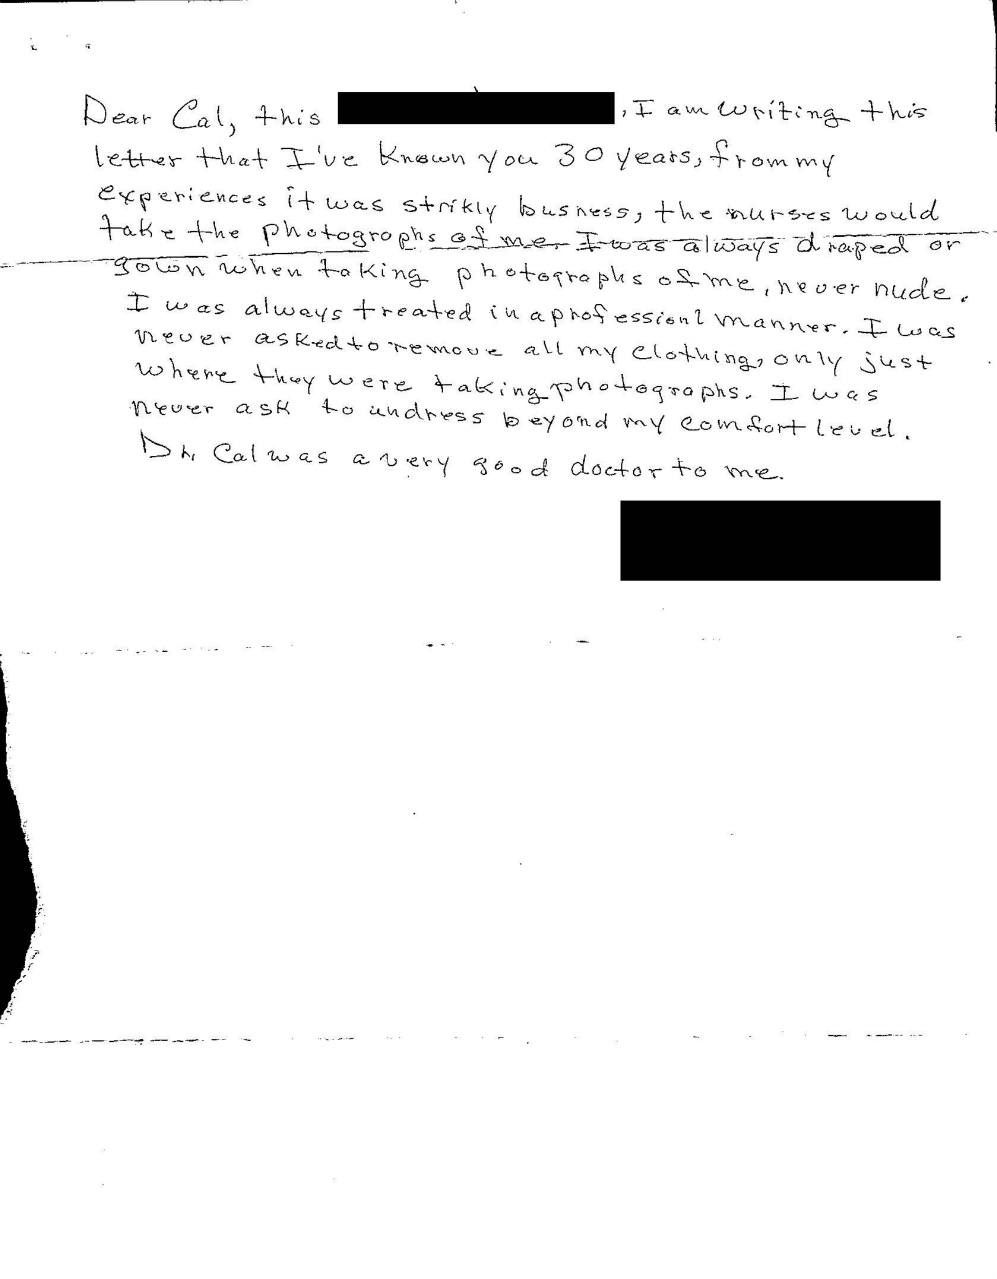 Dear Cal, this , I am writing this
letter that I've known you 30 years, from my
experiences it was strikly busness, the nurses would
take the photographs of me. I was always draped or
gown when taking photographs of me, never nude.
I was always treated in a professionl manner. I was
never asked to remove all my clothing, only just
where they were taking photographs. I was
never ask to undress beyond my comfort level.
Dr. Cal was a very good doctor to me.